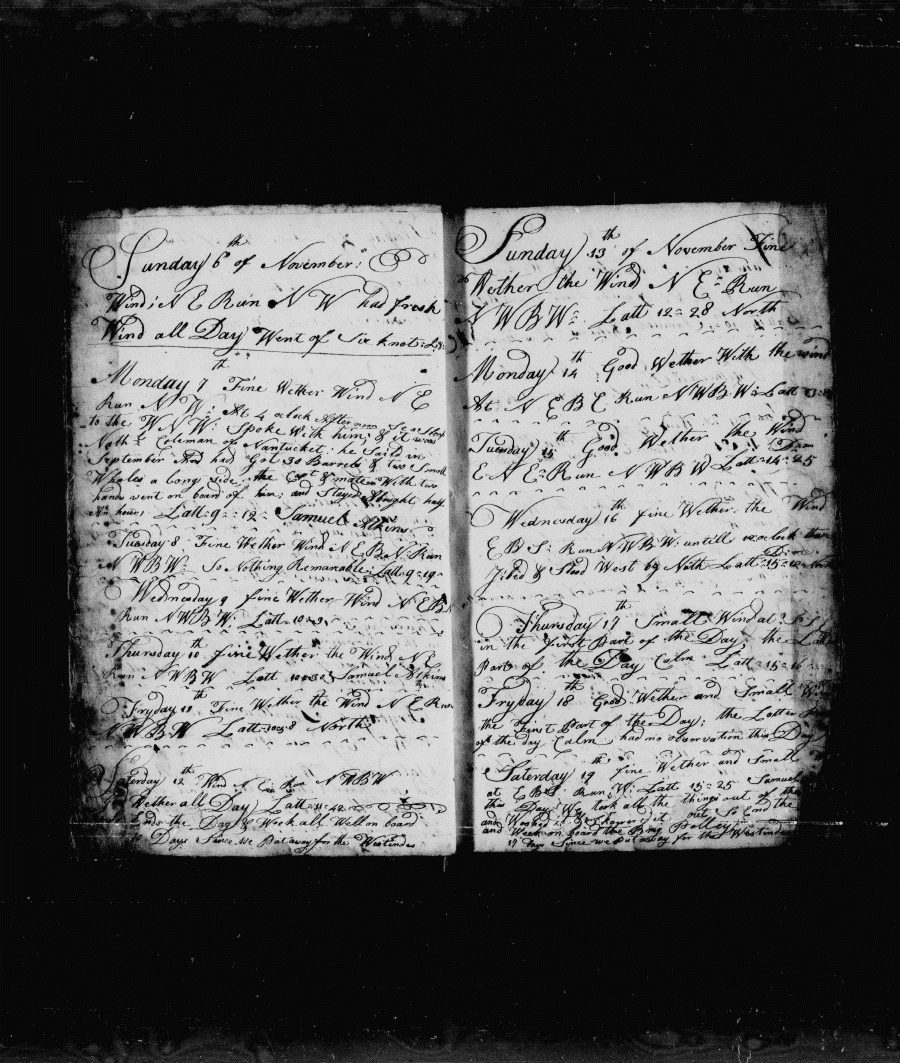 Sunday 6th of November:
Wind: N E Run N W had fresh
Wind all Day Went of Six knots
Monday 7th Fine Wether Wind N E
Run N W: At 4 oclock After noon
to the W N W: Spoke With him; & it was
Coleman of Nantucket: he Saild in
September And had Got 30 Barrels & two Small
Whales a Long Side the Capt & mate With two
hands went on board of him, and Stayed About half
An hour, Latt=9=12= Samuel Atkins
Tuesday 8 Fine Wether Wind N E B N Run
N W B W: So Nothing Remarkable: Latt=9=19=
Wednesday 9 fine Wether Wind N E B
Run N W B W: Latt=10=3
Thursday 10th fine Wether the Wind N E
Run N W B W Latt Samuel Atkins
Fryday 11th Fine Wether the Wind N E Run
N W B W Latt North
Saterday 12th Wind N E Run N W B W
Wether all Day Latt=11=42
Ends the Day & Week all Well on board
Days Since we Put away for the Westindes
Sunday 13th of November Fine
Wether the Wind N E= Run
N W B W= Latt 12=28 North
Monday 14th Good Wether With the wind
At N E B E Run N W B W: Latt
Tuesday 15th Good Wether the Wind
E N E= Run N W B W Latt=14=25
Wednesday 16th fine Wether: the Wind
E B S: Run N W B W: untill oclock then
Jibed & Stood West by North Latt=15=
Thursday 17th Small Wind at
in the first Part of the Day, the Latter
Part of the Day Calm Latt=15=16
Fryday 18th Good Wether and Small
the First Part of the Day: the Latter
of the day Calm had no observation this Day
Saterday 19th fine Wether and Small
at E B S: Run W: Latt 15=25 Samuel
this Day We took all the things out of the
and Washed it & out So End the
and Week on board the Brig Polley
17 Days Since we Put away for the Westindes